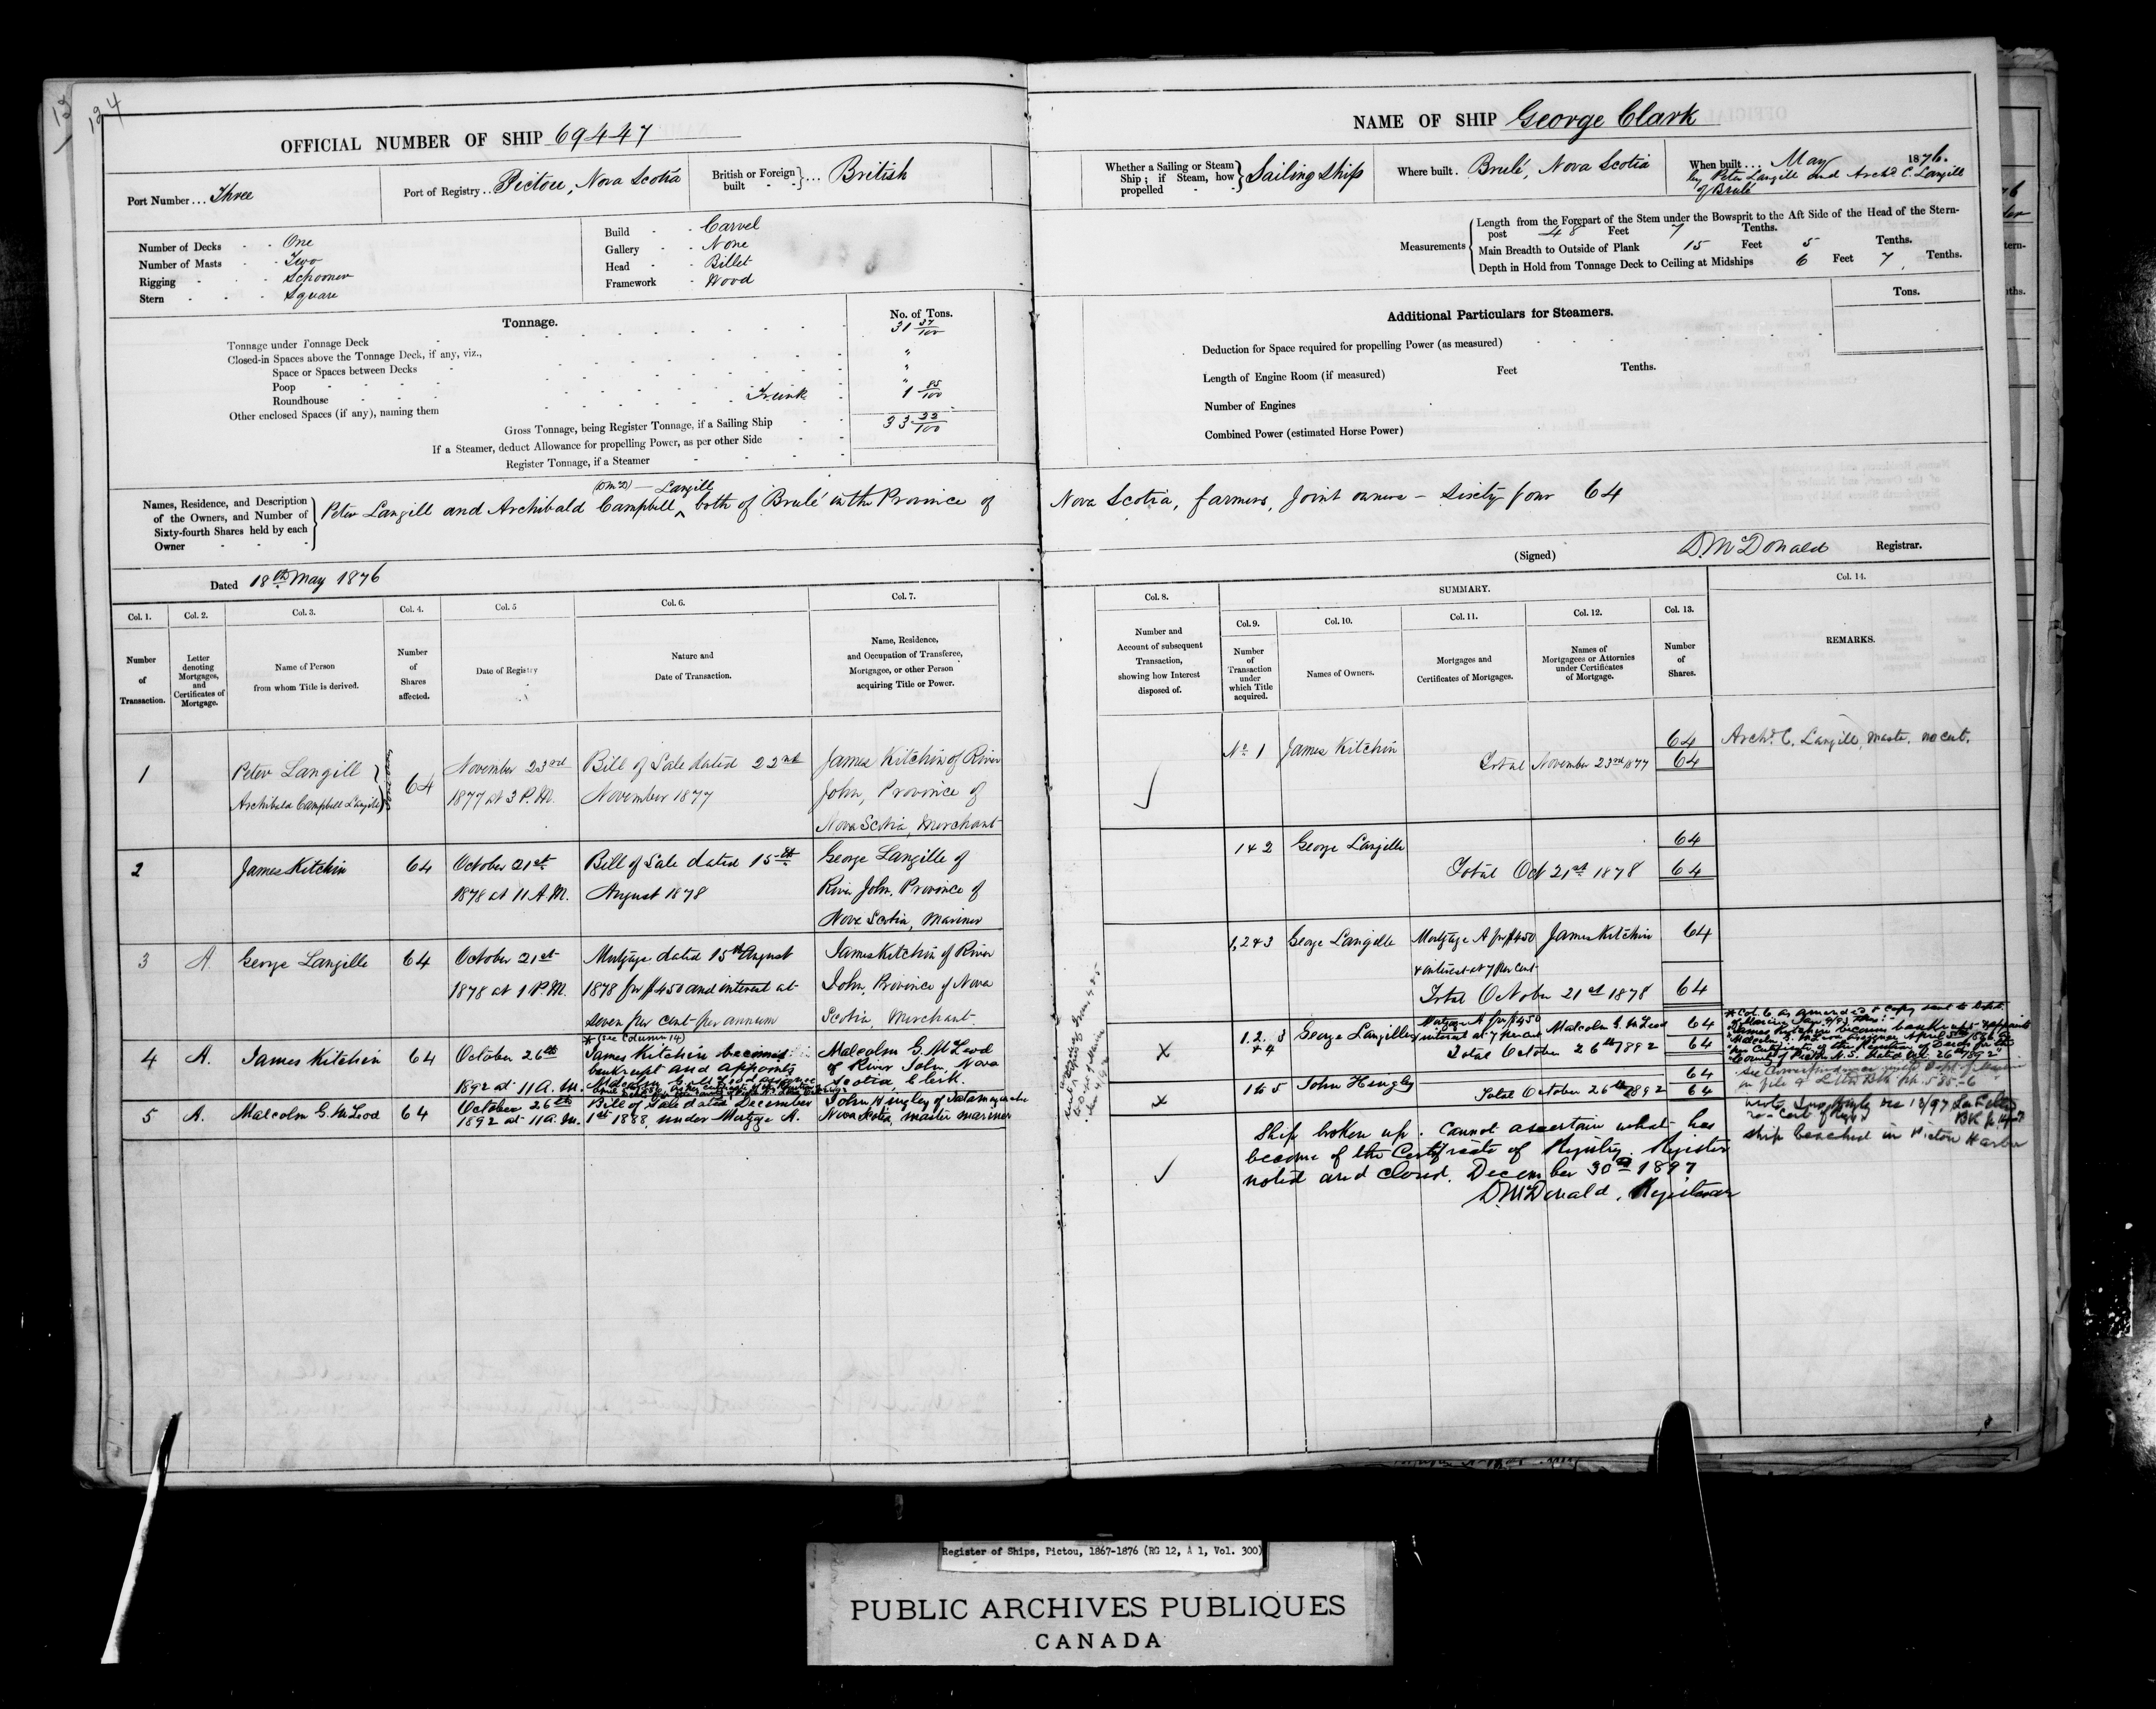 194
OFFICIAL NUMBER OF SHIP 69447
Port Number ... Three
Port of Registry .. Pictou, Nova Scotia
British or Foreign built ... British
Number of Decks - - One
Number of Masts - - Two
Rigging - - Schooner
Stern - - - Square
Build - - Carvel
Gallery - - None
Head - - Billet
Framework - Wood
Tonnage.
No. of Tons.
Tonnage under Tonnage Deck 31 37/100
Closed-in Spaces above the Tonnage Deck, if any, viz., "
Space or Spaces between Decks "
Poop "
Roundhouse
Other enclosed Spaces (if any), naming them Trunk 1 85/100
Gross Tonnage, being Register Tonnage, if a Sailing Ship 33 22/100
If a Steamer, deduct Allowance for propelling Power, as per other Side
Register Tonnage, if a Steamer
Names, Residence, and Description
of the Owners, and Number of
Sixty-fourth Shares held by each
Owner
(D McD) — Langill
Peter Langill and Archibald Campbell ^ both of Brulé in the Province of
Dated 18th May 1876
Col. 1. Col. 2. Col. 3. Col. 4. Col. 5 Col. 6. Col. 7.
Number of Transaction.
Letter denoting Mortgages, and Certificates of Mortgage.
Name of Person from whom Title is derived.
Number of Shares affected.
Date of Registry
Nature and Date of Transaction.
Name, Residence, and Occupation of Transferee, Mortgagee, or other Person acquiring Title or Power.
1
Peter Langill
Archibald Campbell Langill
Joint owners
64
November 23rd
1877 at 3 P.M.
Bill of Sale dated 22nd
November 1877
James Kitchin of River
John, Province of
Nova Scotia, Merchant
2
James Kitchin
64
October 21st
1878 at 11 A.M.
Bill of Sale dated 15th
August 1878
George Langille of
River John, Province of
Nova Scotia, Mariner
3
A.
George Langille
64
October 21st
1878 at 1 P.M.
Mortgage dated 15th August
1878 for $450 and interest at
seven per cent per annum
James Kitchin of River
John, Province of Nova
Scotia, Merchant.
4
A.
James Kitchin
64
October 26th
1892 at 11 A.M.
* (see Column 14)
James Kitchin becomes
bankrupt and appoints
Malcolm G. McLeod
Malcolm G. McLeod
of River John, Nova
Scotia, Clerk.
5
A.
Malcolm G. McLeod
64
October 26th
1892 at 11 A.M.
Bill of Sale dated December
1st 1888, under Mortgage A.
John Hingley of Tatamagouche
Nova Scotia, master mariner
NAME OF SHIP George Clark
Whether a Sailing or Steam Ship; if Steam, how propelled Sailing Ship
Where built. Brulé, Nova Scotia
When built ... May 1876.
by Peter Langill and Archd C. Langill
of Brulé
Measurements
Length from the Forepart of the Stem under the Bowsprit to the Aft Side of the Head of the Stern-
post 48 Feet 7 Tenths.
Main Breadth to Outside of Plank 15 Feet 5 Tenths.
Depth in Hold from Tonnage Deck to Ceiling at Midships 6 Feet 7 Tenths.
Additional Particulars for Steamers.
Tons.
Deduction for Space required for propelling Power (as measured)
Length of Engine Room (if measured) Feet Tenths.
Number of Engines
Combined Power (estimated Horse Power)
Nova Scotia, farmers, Joint owners — Sixty four 64
(Signed) D. McDonald Registrar.
Col. 8.
SUMMARY.
Col. 14.
Col. 9. Col. 10. Col. 11. Col. 12. Col. 13.
Number and Account of subsequent Transaction, showing how Interest disposed of.
Number of Transaction under which Title acquired.
Names of Owners.
Mortgages and Certificates of Mortgages.
Names of Mortgagees or Attornies under Certificates of Mortgage.
Number of Shares.
REMARKS.
No. 1 James Kitchin 64
Total November 23rd 1877 64
Archd C. Langill, master. no cert.
1 & 2 George Langille 64
Total Oct 21st 1878 64
1, 2 & 3 George Langille Mortgage A for $450 James Kitchin 64
& interest at 7 per cent
Total October 21st 1878 64
1. 2. 3
& 4
George Langille
Mortgage A for $450
& interest at 7 per cent
Malcolm G. McLeod 64
Total October 26th 1892 64
X
1 to 5 John Hingley 64
Total October 26th 1892 64
X
* Col. 6 as amended & copy sent to Dept.
County of Pictou N.S. dated Oct. 26th 1892"
See Correspondence with Dept of Marine
Ship broken up. Cannot ascertain what has
become of the Certificate of Registry. Register
noted and closed. December 30th 1897
D. McDonald, Registrar
ship beached in Pictou Harbor
Register of Ships, Pictou, 1867-1876 (RG 12, A 1, Vol. 300)
PUBLIC ARCHIVES PUBLIQUES
CANADA